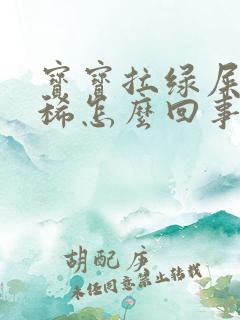 寶寶拉绿屎
稀怎麼回事
胡配庄
未经同意禁止转载